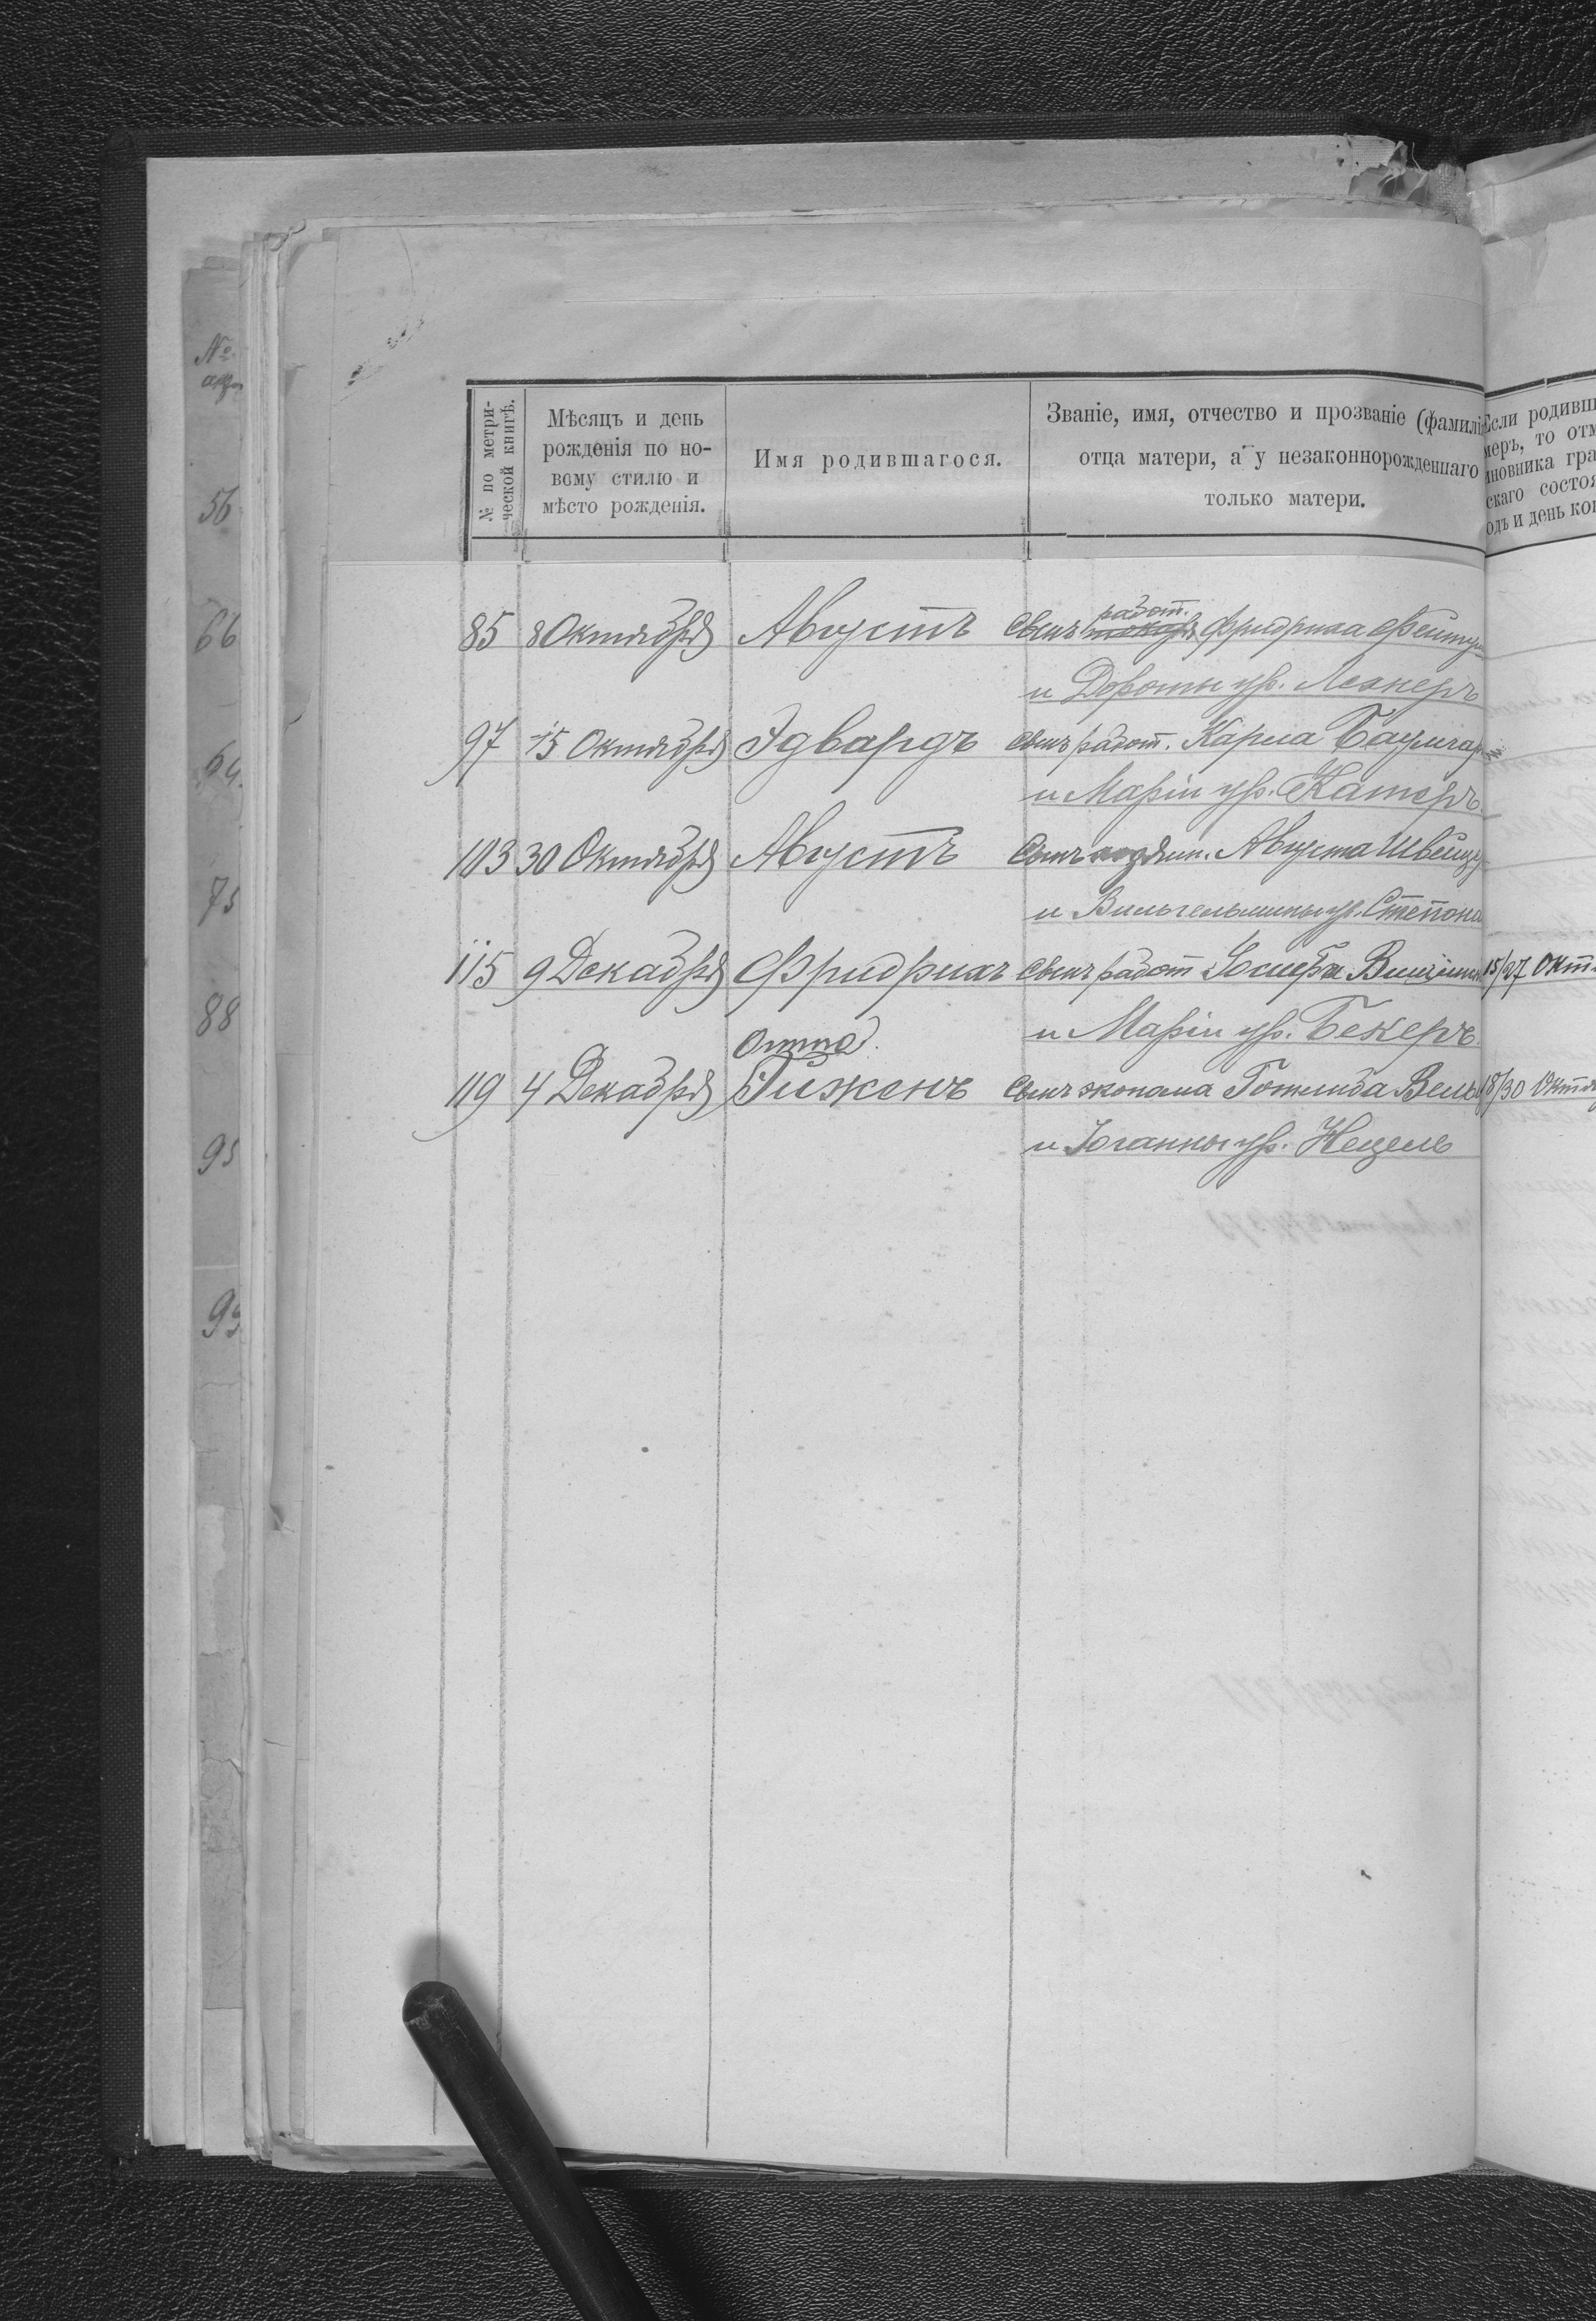 №
56
66
64
75
88
95
99
№ по метри-
ческой книгѣ.
Мѣсяцъ и день
рожденія по но-
вому стилю и
мѣсто рожденія.
Имя родившагося.
Званіе, имя, отчество и прозваніе (фамилі
отца матери, а у незаконнорожденнаго
только матери.
Если родивш
меръ, то отм
иновника гра
скаго состоя
одъ и день кон
работ.
85 8 Октября Августъ Сынъ токаря Фридриха
и Дороты ур. Лехнеръ
97 15 Октября Эдвардъ сынъ работ. Карла Баумгар
и Маріи ур. Катеръ
103 30 Октября Августъ Сынъ Августа Швейце
и Вильгельмины ур.
115 9 Декабря Фридрихъ сынъ работ Іосифа 15/27 Окт.
Отто и Маріи ур. Бекеръ
119 4 Декабря Гижекъ Сынъ эконома Готлиба Вель 18/30 Октя
и Юганны ур. Нецель